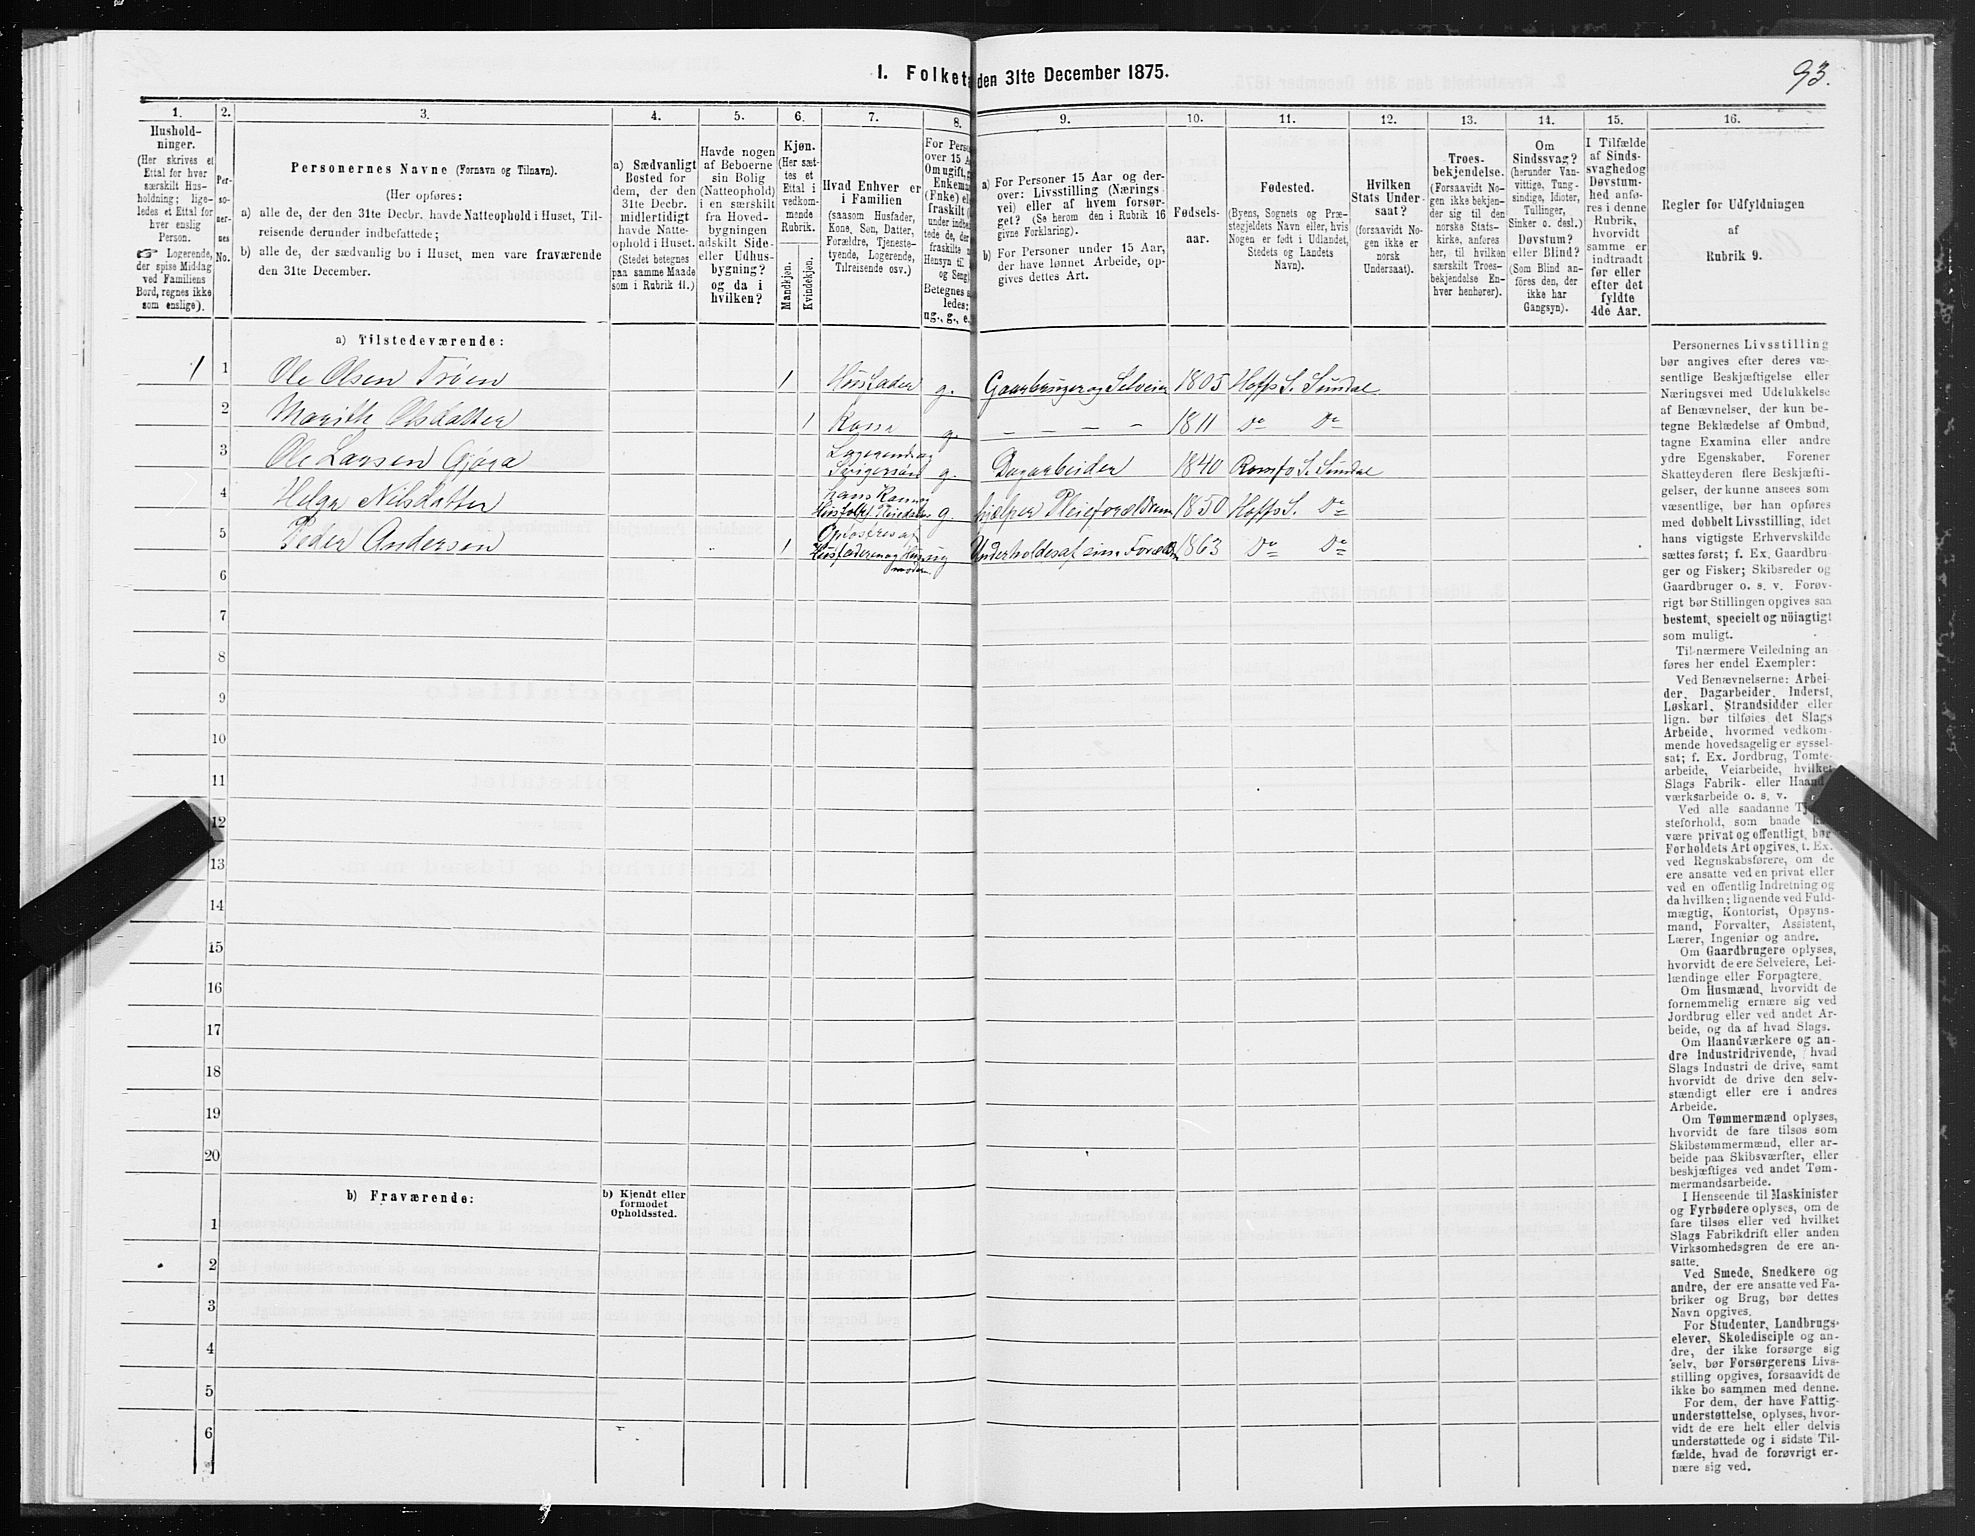 93.
1. Folketa den 31te December 1875.
1. 2. 3. 4. 5. 6. 7. 8. 9. 10. 11. 12. 13. 14. 15. 16.
Hushold-
ninger.
(Her skrives et
Ettal for hver
særskilt Hus-
holdning; lige-
ledes et Ettal for
hver enslig
Person.
☞ Logerende,
der spise Middag
ved Familiens
Bord, regnes ikke
som enslige).
Per-
so-
ner-
nes
No.
Personernes Navne (Fornavn og Tilnavn).
(Her opføres:
a) alle de, der den 31te Decbr. havde Natteophold i Huset, Til-
reisende derunder indbefattede;
b) alle de, der sædvanlig bo i Huset, men vare fraværende
den 31te December.
a) Sædvanligt
Bosted for
dem, der den
31te Decbr.
midlertidigt
havde Natte-
ophold i Huset.
(Stedet betegnes
paa samme Maade
som i Rubrik 11.)
Havde nogen
af Beboerne
sin Bolig
(Natteophold)
i en særskilt
fra Hoved-
bygningen
adskilt Side-
eller Udhus-
bygning?
og da i
hvilken?
Kjøn.
(Her sæt-
tes et
Ettal i
vedkom-
mende
Rubrik.
Mandkjøn.
Kvindekjøn.
Hvad Enhver er
i Familien
(saasom Husfader,
Kone, Søn, Datter,
Forældre, Tjeneste-
tyende, Logerende,
Tilreisende osv.)
For Perso
over 15 A
Om ugift, g
Enkema
(Enke) ell
fraskilt
under indbe
tede de, der
fraskilte
Hensyn til
og Seng)
Betegnes s
ledes:
ug., g., e.
a) For Personer 15 Aar og der-
over: Livsstilling (Nærings
vei) eller af hvem forsør-
get? (Se herom den i Rubrik 16
givne Forklaring).
b) For Personer under 15 Aar,
der have lønnet Arbeide, op-
gives dettes Art.
Fødsels-
aar.
Fødested.
(Byens, Sognets og Præ-
stegjeldets Navn eller, hvis
Nogen er født i Udlandet,
Stedets og Landets
Navn).
Hvilken
Stats Under-
saat?
(forsaavidt No-
gen ikke er
norsk
Undersaat).
Troes-
bekjendelse.
(Forsaavidt No-
gen ikke bekjen-
der sig til den
norske Stats-
kirke, anføres
her, til hvilken
særskilt Troes-
bekjendelse En-
hver henhører).
Om
Sindssvag?
(herunder Van-
vittige, Tung-
sindige, Idioter,
Tullinger,
Sinker o. desl.)
Døvstum?
eller Blind?
(Som Blind an-
føres den, der
ikke har
Gangsyn).
I Tilfælde
af Sinds-
svaghed og
Døvstum-
hed anfø-
res i denne
Rubrik,
hvorvidt
samme er
indtraadt
før eller
efter det
fyldte
4de Aar.
Regler for Udfyldningen
af
Rubrik 9.
a) Tilstedeværende:
1 1 Ole Olsen Trøen 1 Husfader g. Gaarbruger og Selveier 1805 Hoffs S. Sundal
2 Marith Olsdatter 1 Kone g. – – – – 1811 Do Do
3 Ole Larsen Gjøra Logerende og Svigersøn g. Dagarbeider 1840 Romfo S. Sundal
4 Helga Nilsdatter hans Kone og g. hjælper Pleieforældrene 1850 Hoffs S. Do
5 Peder Andersen 1 Opfostres af Husfaderen og Husmoderen ug Underholdes af sine Forældre 1863 Do Do
6
7
8
9
10
11
12
13
14
15
16
17
18
19
20
b) Fraværende:
b) Kjendt eller
formodet
Opholdssted.
1
2
3
4
5
6
Personernes Livsstilling
bør angives efter deres væ-
sentlige Beskjæftigelse eller
Næringsvei med Udelukkelse
af Benævnelser, der kun be-
tegne Beklædelse af Ombud,
tagne Examina eller andre
ydre Egenskaber. Forener
Skatteyderen flere Beskjæfti-
gelser, der kunne ansees som
væsentlige, bør han opføres
med dobbelt Livsstilling, idet
hans vigtigste Erhvervskilde
sættes først; f. Ex. Gaardbru-
ger og Fisker; Skibsreder og
Gaardbruger o. s. v. Forøv-
rigt bør Stillingen opgives saa
bestemt, specielt og nöiagtigt
som muligt.
Til nærmere Veiledning an
føres her endel Exempler:
Ved Benævnelserne: Arbei-
der, Dagarbeider, Inderst,
Løskarl, Strandsidder eller
lign. bør tilføies det Slags
Arbeide, hvormed vedkom-
mende hovedsagelig er syssel-
sat; f. Ex. Jordbrug, Tomte-
arbeide, Veiarbeide, hvilket
Slags Fabrik- eller Haand-
værksarbeide o. s. v.
Ved alle saadanne
steforhold, som baade
være privat og offentligt, bør
Forholdets Art opgives, t. Ex.
ved Regnskabsførere, om de
ere ansatte ved en privat eller
ved en offentlig Indretning og
da hvilken; lignende ved Fuld-
mægtig, Kontorist, Opsyns-
mand, Forvalter, Assistent,
Lærer, Ingeniør og andre.
Om Gaardbrugere oplyses,
hvorvidt de ere Selveiere, Lei-
lændinge eller Forpagtere.
Om Husmænd, hvorvidt de
fornemmelig ernære sig ved
Jordbrug eller ved andet Ar-
beide, og da af hvad Slags.
Om Haandværkere og an-
dre Industridrivende, hvad
Slags Industri de drive, samt
hvorvidt de drive den selv-
stændigt eller ere i andres
Arbeide.
Om Tømmermænd oplyses,
hvorvidt de fare tilsøs som
Skibstømmermænd, eller ar-
beide paa Skibsværfter, eller
beskjæftiges ved andet Tøm-
mermandsarbeide.
I Henseende til Maskinister
og Fyrbødere oplyses, om de
fare tilsøs eller ved hvilket
Slags Fabrikdrift eller anden
Virksomhedsgren de ere an-
satte.
Ved Smede, Snedkere og
andre, der ere ansatte ved Fa-
briker og Brug, bør dettes
Navn opgives.
For Studenter, Landbrugs-
elever, Skoledisciple og an-
dre, der ikke forsørge sig
selv, bør Forsørgerens Livs-
stilling opgives, forsaavidt de
ikke bo sammen med denne.
For dem, der have Fattig-
understøttelse, oplyses, hvor-
vidt de ere helt eller delvis
understøttede og i sidste Til-
fælde, hvad de forøvrigt er-
nære sig ved.